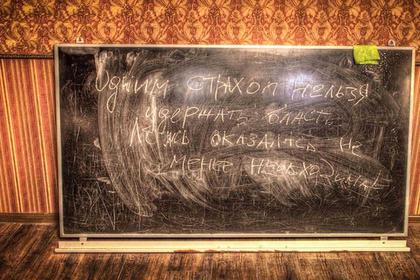 Одним страхом нельзя
удержать власть.
Ложь оказалась не
менее необходимой